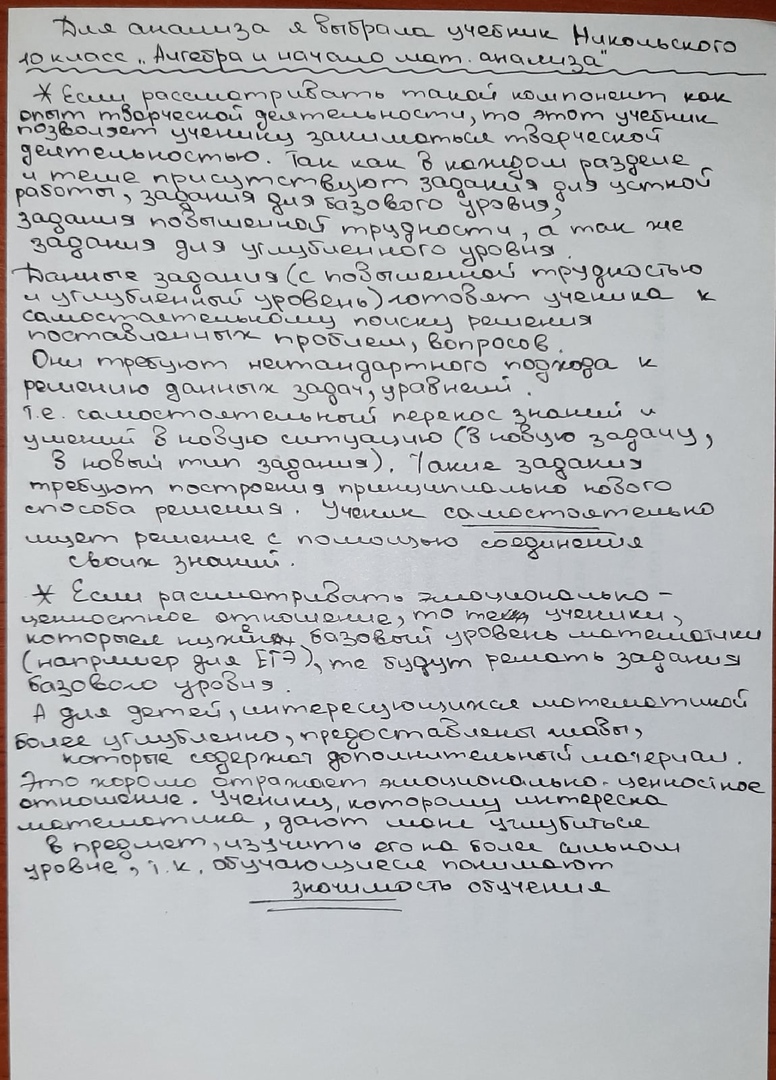 Для анализа я выбрала учебник Никольского
10 класс „Алгебра и начало мат. анализа"
* Если рассматривать такой компонент как
опыт творческой деятельности, то этот учебник
позволяет ученику заниматься творческой
деятельностью. Так как в каждом разделе
и теме присутствуют задания для устной
работы, задания для базового уровня,
задания повышенной трудности, а так же
задания для углубленного уровня.
Данные задания (с повышенной трудностью
и углубленный уровень) готовят ученика к
самостоятельному поиску решения
поставленных проблем, вопросов.
Они требуют нестандартного подхода к
решению данных задач, уравнений.
Т.е. самостоятельный перенос знаний и
умений в новую ситуацию (в новую задачу,
в новый тип задания). Такие задания
требуют построения принципиально нового
способа решения. Ученик самостоятельно
ищет решение с помощью соединения
своих знаний.
* Если расматривать эмоционально-
ценностное отношение, то те ученики,
которым нужен базовый уровень математики
(например для ЕГЭ), те будут решать задания
базового уровня.
А для детей, интересующихся математикой
более углубленно, предоставлены главы,
которые содержат дополнительный материал.
Это хорошо отражает эмоционально-ценностное
отношение. Ученику, которому интересна
математика, дают шанс углубиться
в предмет, изучить его на более сильном
уровне, т.к. обучающиеся понимают
значимость обучения